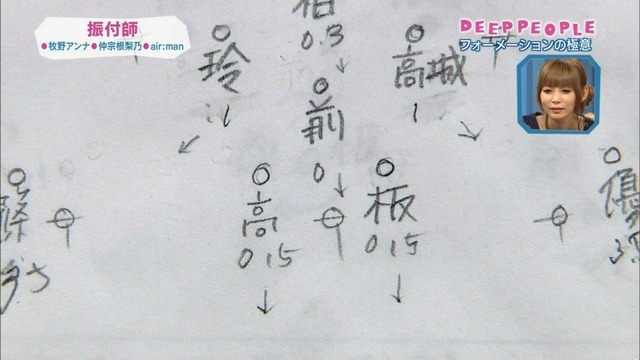 振付師
●牧野アンナ●仲宗根梨乃●air:man
DEEP PEOPLE
フォーメーションの極意
柏
0.3
玲
1
前
0
高城
1
高
0.15
板
0.15
篠
優